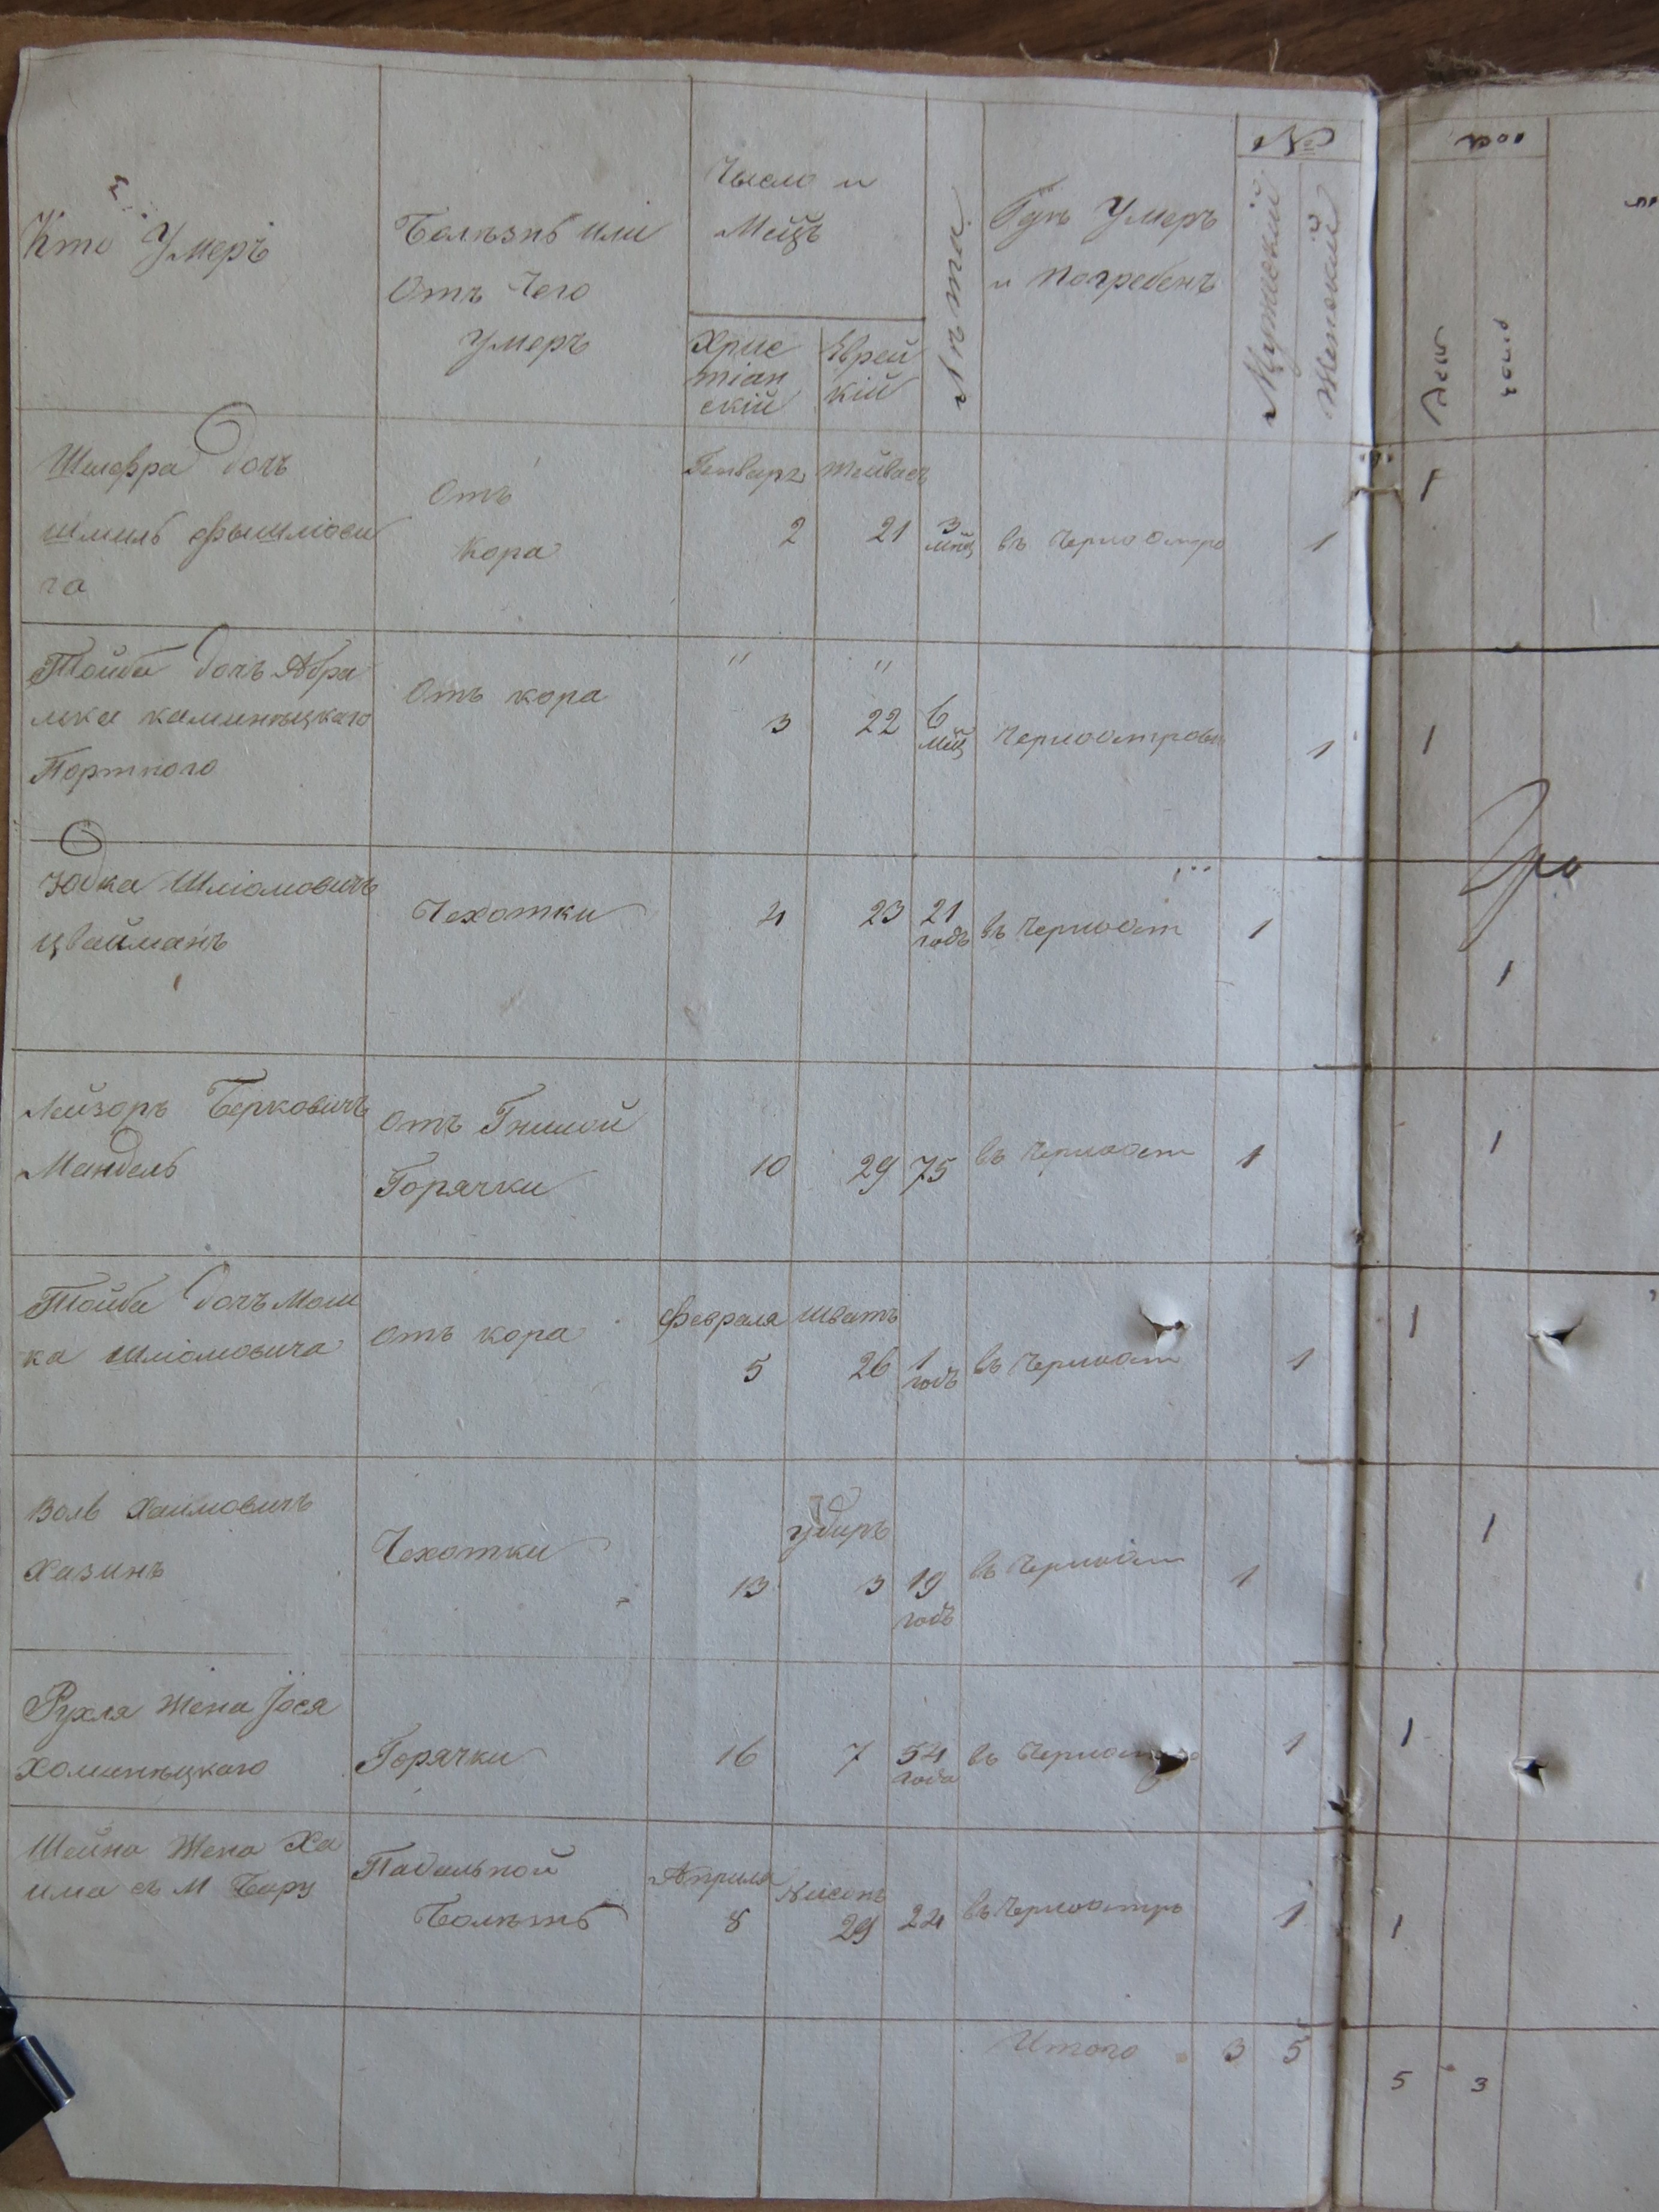 №
Кто Умеръ
Болѣзнь или
Отъ Чего
умеръ
Число и
Мѣцъ
Хрис
тіан
скій
Еврей
кій
Лѣта
Гдѣ Умеръ
и погребенъ
Мужескій
Женскій
дочь
Шмиль
га
Отъ
Кора
Генваря
Тейвась
2
21
3
мѣц
въ Черноостро
1
Тойба дочъ Абра
мка каминецкаго
Портного
Отъ кора
"
"
3
22
6
мѣц
Черноостровѣ
1
Юдка Шліомовичъ
Цвайманъ
Чехотки
4
23
21
годъ
въ Черноост
1
Лейзоръ Берковичъ
Мандель
Отъ Гнилой
Горячки
10
29
75
въ Черноост
1
Тойба дочъ Мош
ка Шліомовича
отъ кора
февраля
Шватъ
5
26
1
годъ
въ Черноост
1
Воль Хаимовичъ
Хазинъ
Чехотки
удиръ
13
3
19
годъ
въ Черноост
1
Рухля жена Іося
Хоминецкаго
Горячки
16
7
54
года
въ
1
Шейна Жена Ха
има съ М Бару
Падальной
Болѣть
Апреля
Нисонъ
8
29
24
въ Черноостро
1
Итого
3
5
1
1
1
1
1
1
1
1
5
3